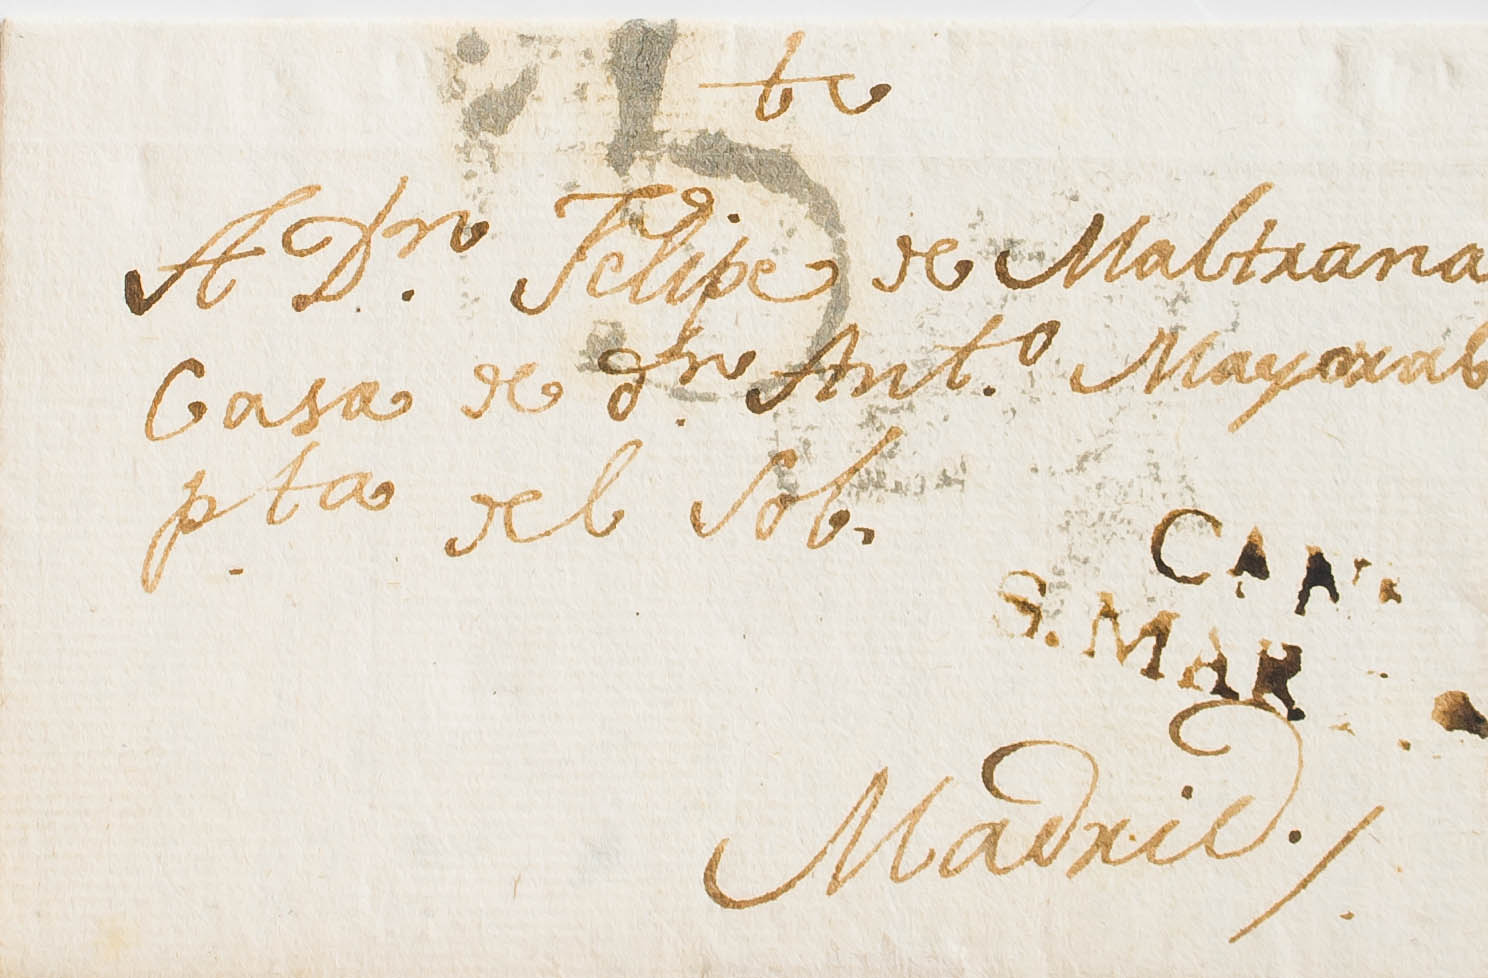 te
A Dn. Felipe de Maltrana
Casa de dn. Anto. Mayoral
pta del Sob.
CAN
S. MAR
Madrid.
5